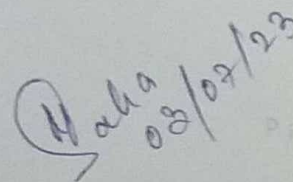 Naha
03/07/23